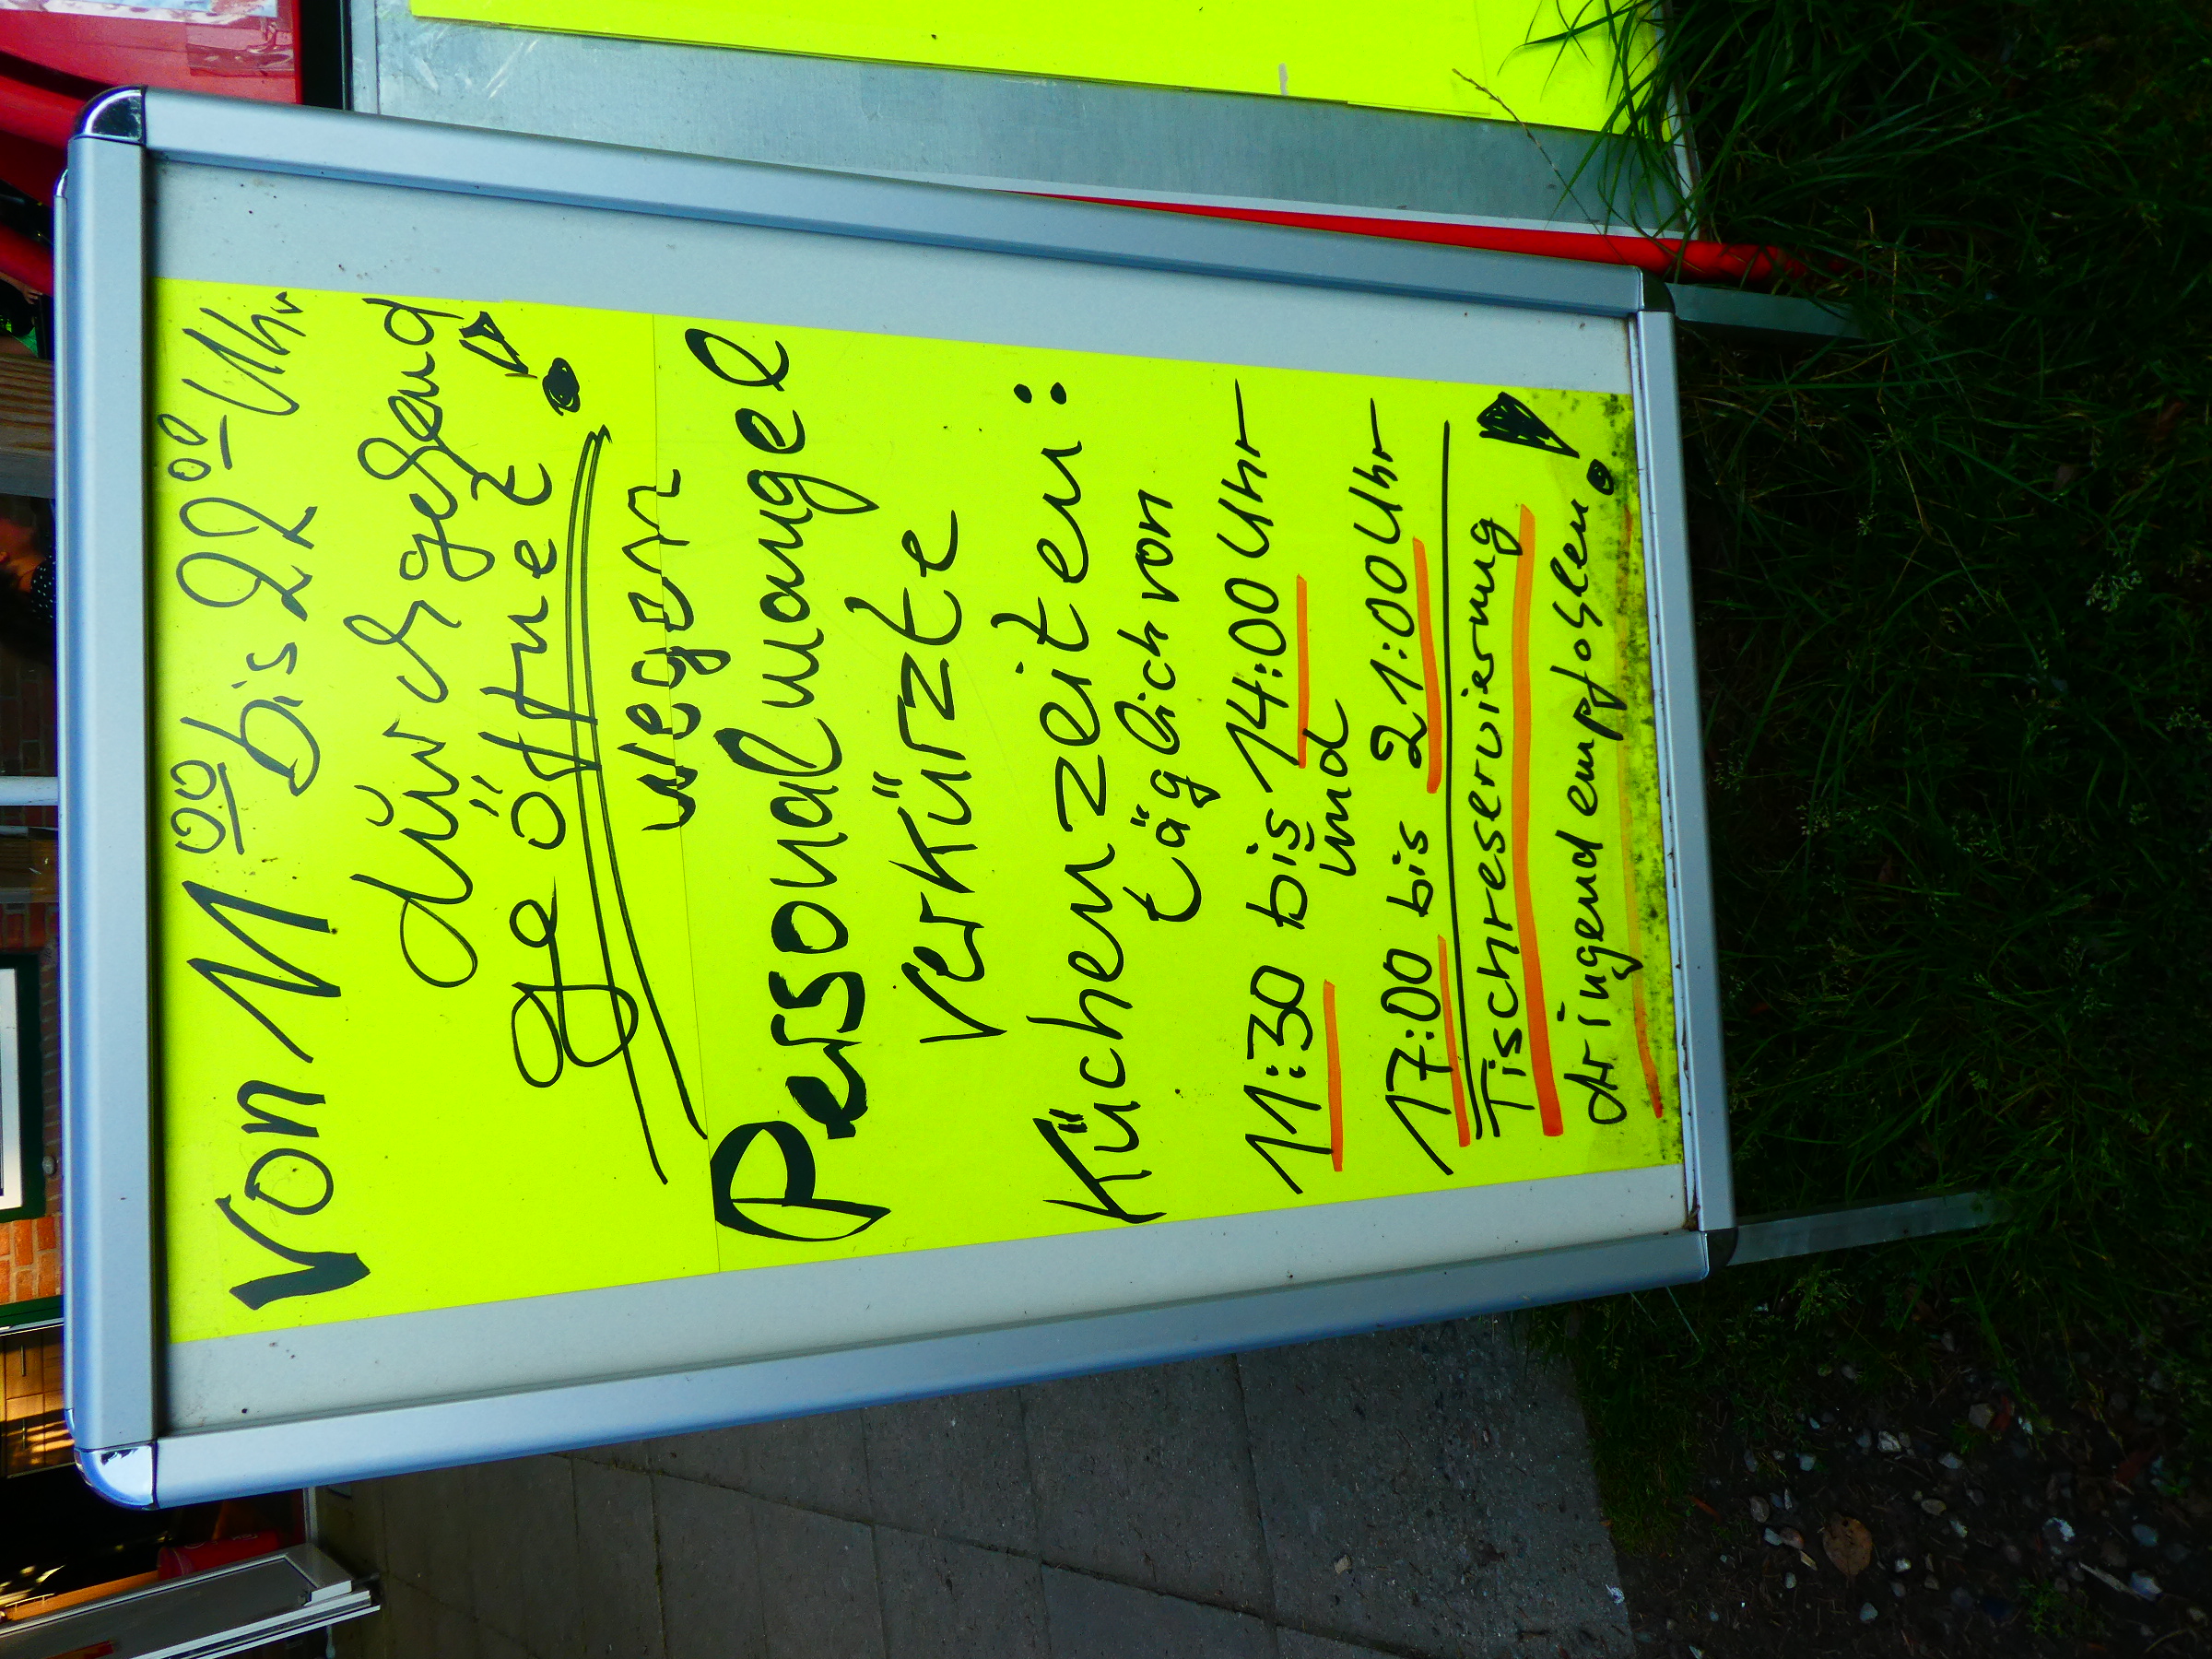 von 11⁰⁰ bis 22⁰⁰ Uhr
durchgehend
geöffnet!
wegen
Personalmangel
verkürzte
Küchenzeiten:
täglich von
11:30 bis 14:00 Uhr
und
17:00 bis 21:00 Uhr
Tischreservierung
dringend empfohlen!